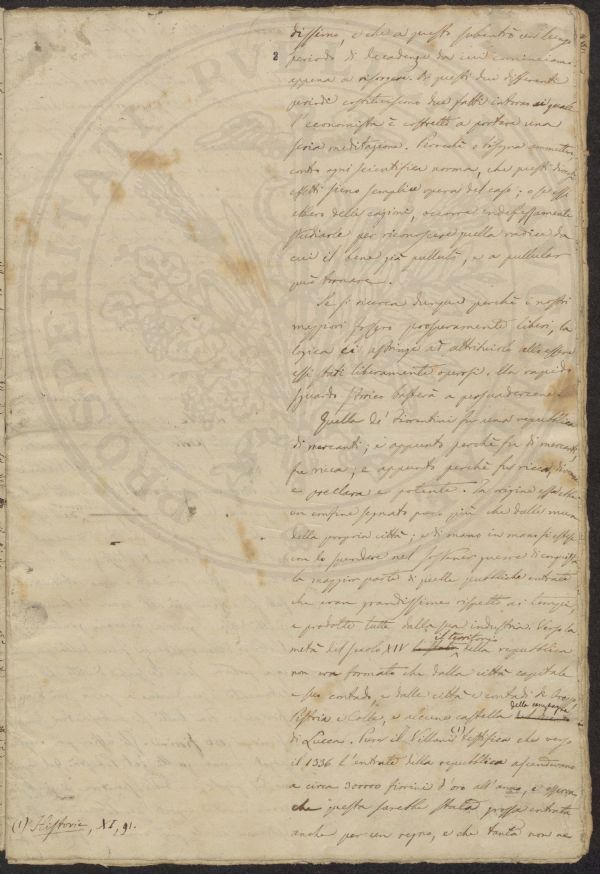 2
dissimo, e che a questo subentrò un lungo
periodo di decadenza da cui cominciamo
appena a risorgere. Di questi due differenti
periodi costituiscono due fatti intorno ai quali
l'economista è costretto a portare una
seria meditazione. Perocché o bisogna ammettere
contro ogni scientifica norma, che questi
effetti sieno semplice opera del caso; o se essi
ebbero delle cagioni, occorre indefessamente
studiarle per riconoscere quella radice da
cui il bene già pullulò, e a pullular
può tornare.
Se si ricerca dunque perchè i nostri
maggiori fossero prosperamente liberi, la
logica ci astringe ad attribuirlo all'essere
essi stati liberamente operosi. Un rapido
sguardo storico basterà a persuadercene.
Quella de' Fiorentini fu una repubblica
di mercanti; e appunto perchè fu di mercanti,
fu ricca; e appunto perchè fu ricca,
e preclara e potente. In origine
un confine segnato poco più che dalle mura
della propria città; e di mano in mano si estese
con lo spendere nel sostener guerre di conquista
la maggior parte di quelle pubbliche entrate
che eran grandissime rispetto ai tempi,
e prodotte tutte dalla sua industria. Verso la
metà del secolo XIV il territorio della repubblica
non era formato che dalla città capitale
e suo contado, e dalle città e contadi di Arezzo
Pistoia e Colle, e alcune castella della campagna
di Lucca. Pure il Villani (1) testifica che verso
il 1336 l'entrate della repubblica ascendevano
a circa 300000 fiorini d'oro all'anno, e osserva
che questa sarebbe stata grossa entrata
anche per un regno, e che tanta non ne
(1) Historie, XI, 91.